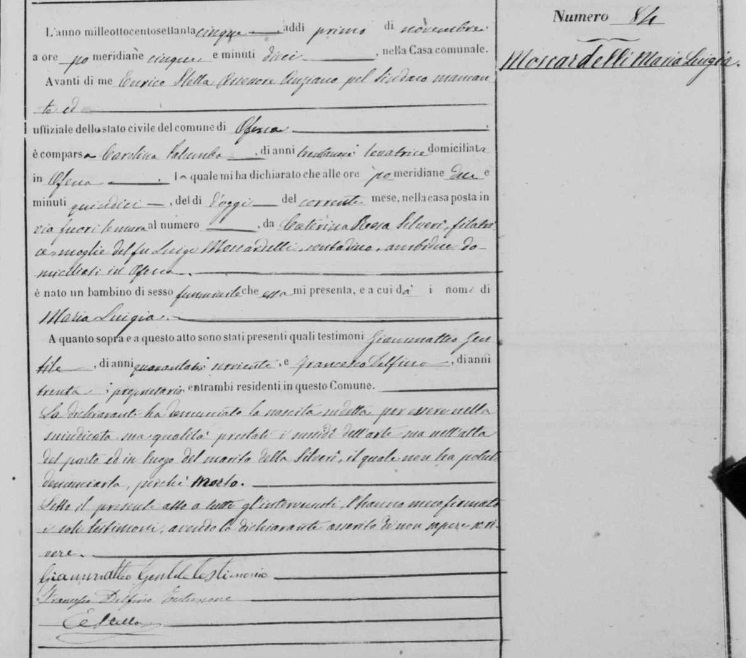 Numero 84
Moscardelli Maria Luigia.
L'anno milleottocentosettantacinque addì primo di novembre
a ore po meridiane cinque e minuti dieci, nella Casa comunale.
Avanti di me Enrico Stella Assessore Anziano pel Sindaco mancan
te ed
uffiziale dello stato civile del comune di Ofena
è comparsa Carolina Palumbo, di anni levatrice domiciliata
in Ofena, la quale mi ha dichiarato che alle ore po meridiane due e
minuti quindici, del dì d'oggi del corrente mese, nella casa posta in
via fuori le mura al numero, da Caterina Rossa Silveri, filatri
ce moglie del fu Luigi Moscardelli, contadino, ambidue do-
miciliati in Ofena.
è nato un bambino di sesso femminile che essa mi presenta, e a cui dà i nomi di
Maria Luigia.
A quanto sopra e a questo atto sono stati presenti quali testimoni Gianmatteo Gen
tile, di anni quarantatre serviente, e Francesco Delfino, di anni
trenta, proprietario, entrambi residenti in questo Comune.
La dichiarante ha denunciato la nascita suddetta per essere nella
suindicata sua qualità prestati i sussidi dell'arte sua nell'atto
del parto ed in luogo del marito della Silveri, il quale non ha potuto
denunciarla, perché morto.
Letto il presente atto a tutti gl'intervenuti, l'hanno meco firmato
i soli testimoni, avendo la dichiarante asserito di non sapere scri
vere.
Gianmatteo Gentile testimonio
Francesco Delfino testimone
E Stella